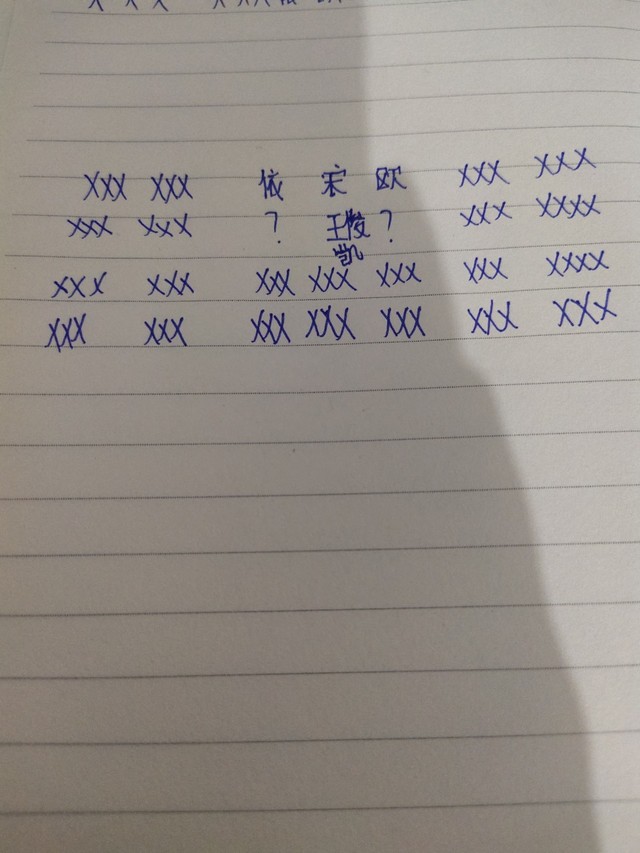 XXX XXX 依 宋 欧 XXX XXX
XXX XXX ? 王俊 ? XXX XXXX
凯
XXX XXX XXX XXX XXX XXX XXXX
XXX XXX XXX XXX XXX XXX XXX